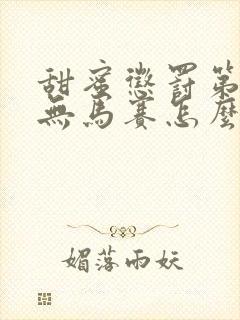 甜蜜懲罰第
無馬賽怎麼
媚落雨妖